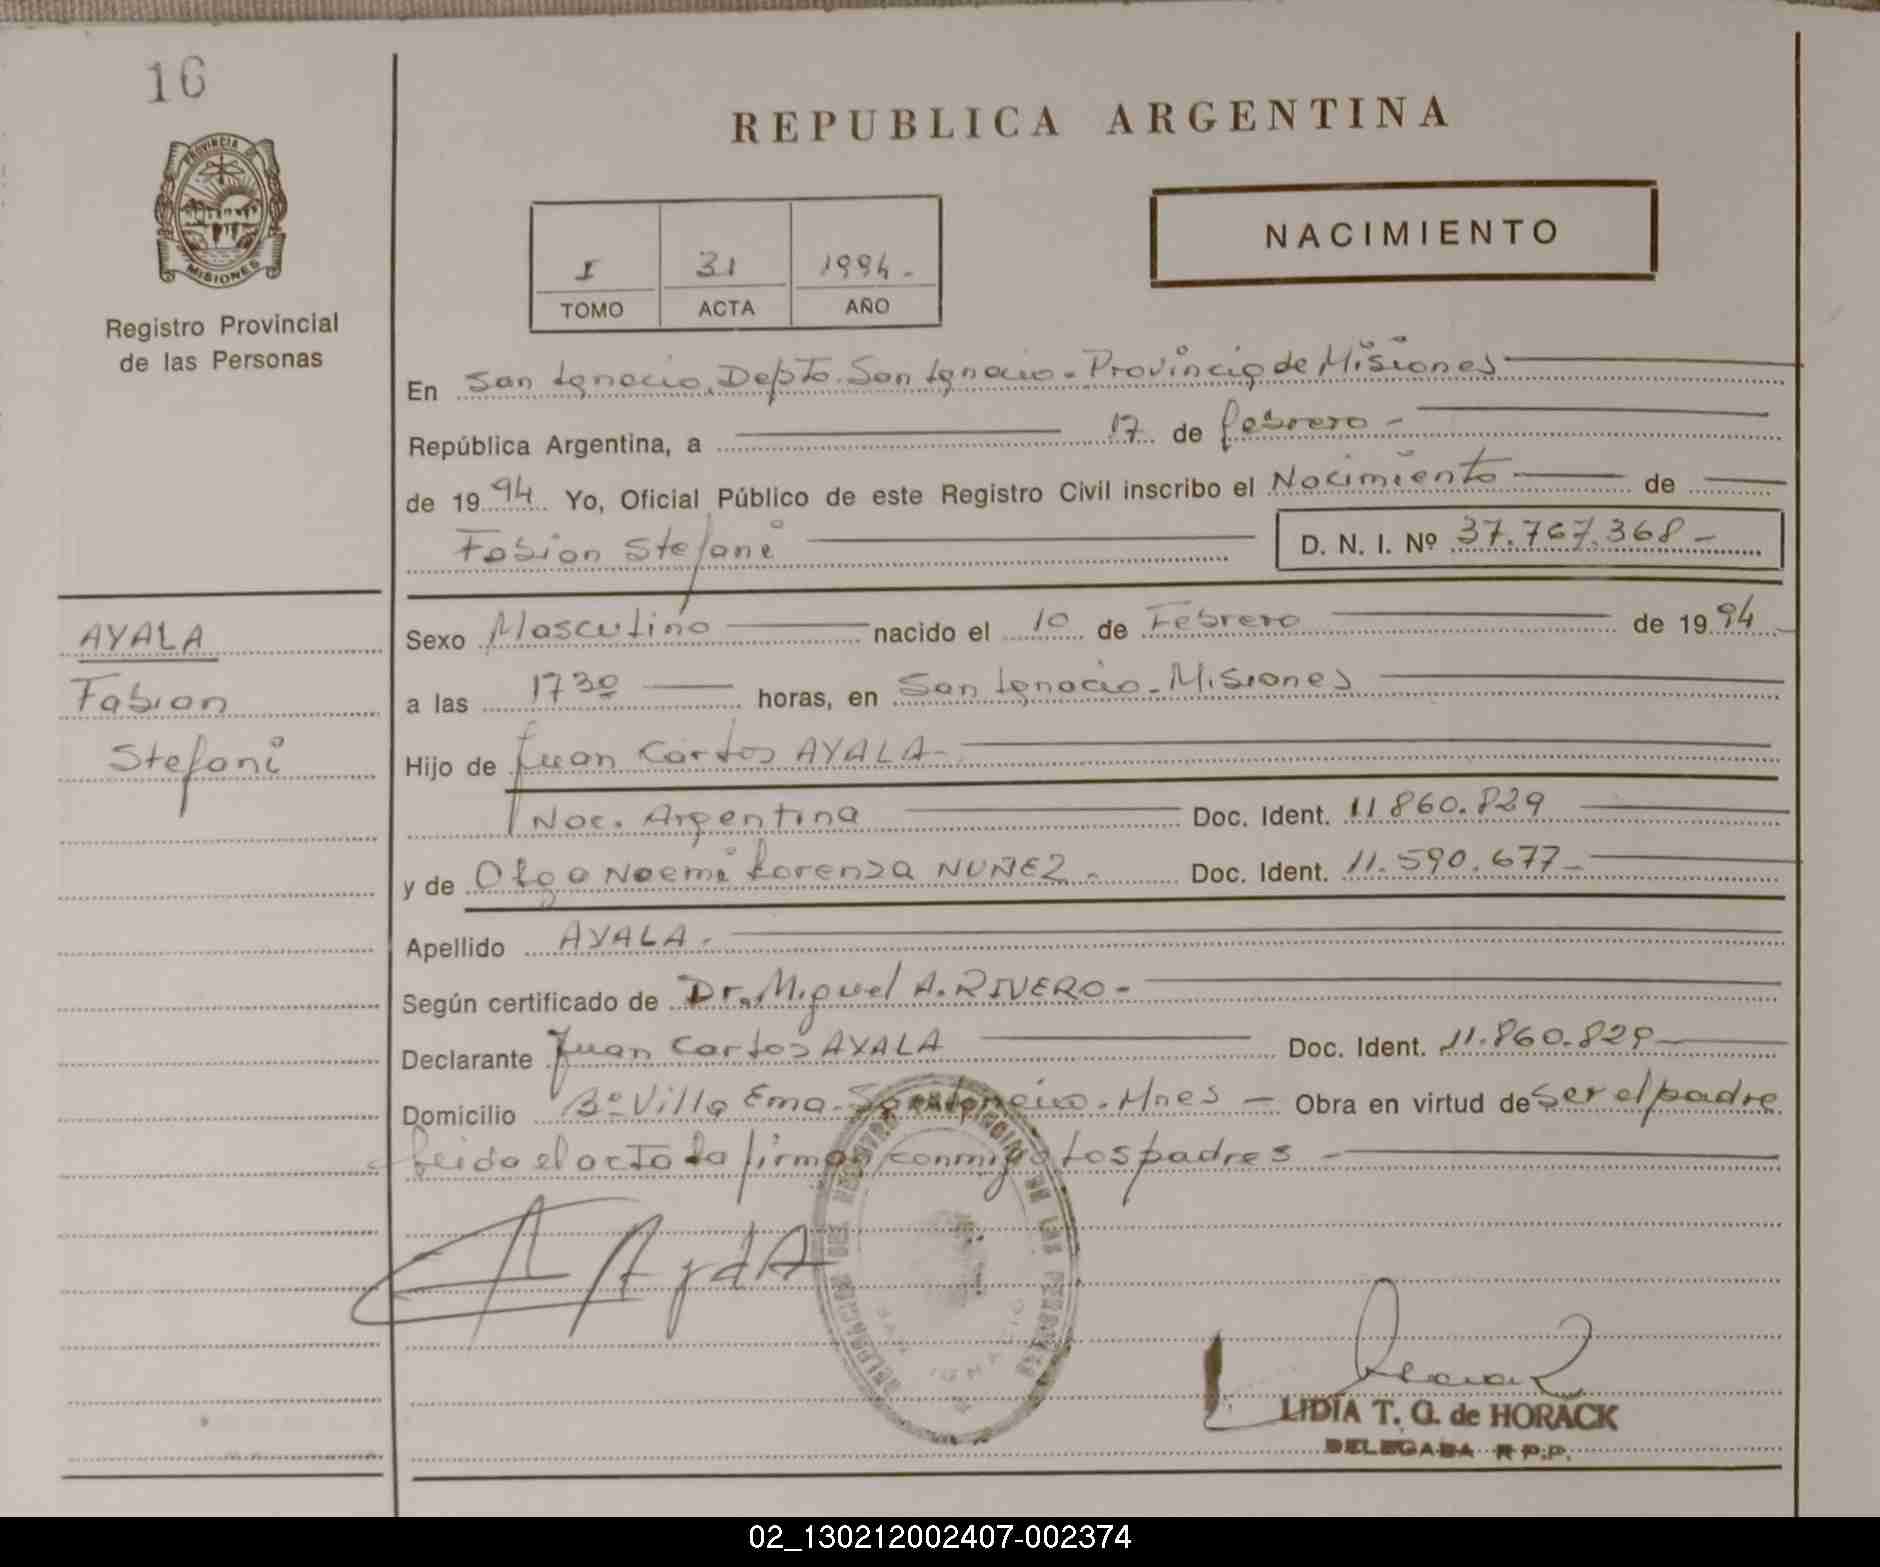 16
PROVINCIA DE
MISIONES
Registro Provincial
de las Personas
REPUBLICA ARGENTINA
NACIMIENTO
I 31 1994.-
TOMO ACTA AÑO
En San Ignacio, Depto. San Ignacio - Provincia de Misiones
República Argentina, a 17 de febrero -
de 19 94. Yo, Oficial Público de este Registro Civil inscribo el Nacimiento de
Fabian Stefani D. N. I. Nº 37.767.368 -
AYALA
Fabian
Stefani
Sexo Masculino nacido el 10 de Febrero de 19 94
a las 17 30 horas, en San Ignacio - Misiones
Hijo de Juan Carlos AYALA -
Nac. Argentina Doc. Ident. 11.860.829
y de Olga Noemi Lorenza NUÑEZ - Doc. Ident. 11.590.677 -
Apellido AYALA -
Según certificado de Dr. Miguel A. RIVERO -
Declarante Juan Carlos AYALA Doc. Ident. 11.860.829
Domicilio Bº Villa Ema - San Ignacio - Mnes - Obra en virtud de Ser el padre
Leida el acta la firman conmigo los padres -
DELEGACION DEL REGISTRO PROVINCIAL DE LAS PERSONAS
SAN IGNACIO
LIDIA T. G. de HORACK
DELEGADA R.P.P.
02_130212002407-002374